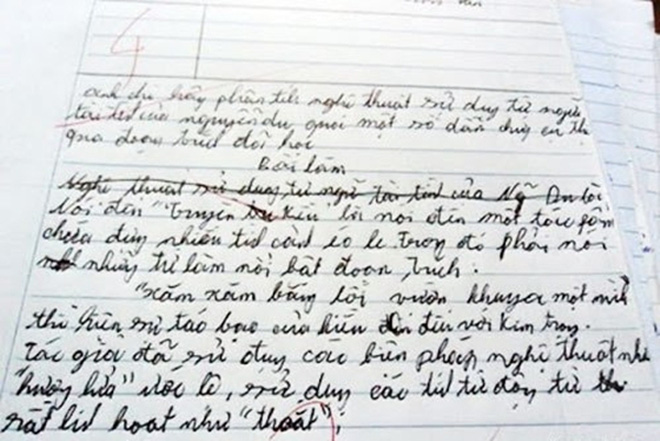 4
anh chị hãy phân tích nghệ thuật sử dụng từ ngữ
tài tình của nguyễn du qua một số dẫn chứng cụ th
qua đoạn trích đã học
Bài làm
Nghệ thuật sử dụng từ ngữ tài tình của Ng Du
Nói đến "truyện kiều là nói đến một tác phẩm
chứa đựng nhiều tình cảnh éo le trong đó phải nói
những từ làm nổi bật đoạn trích:
"xăm xăm băng lối vườn khuya một mình
thể hiện sự táo bạo của kiều đến với kim trọng.
Tác giả đã sử dụng các biện pháp nghệ thuật như
"hương lửa" ước lệ, sử dụng các từ động từ
rất linh hoạt như "thoắt";